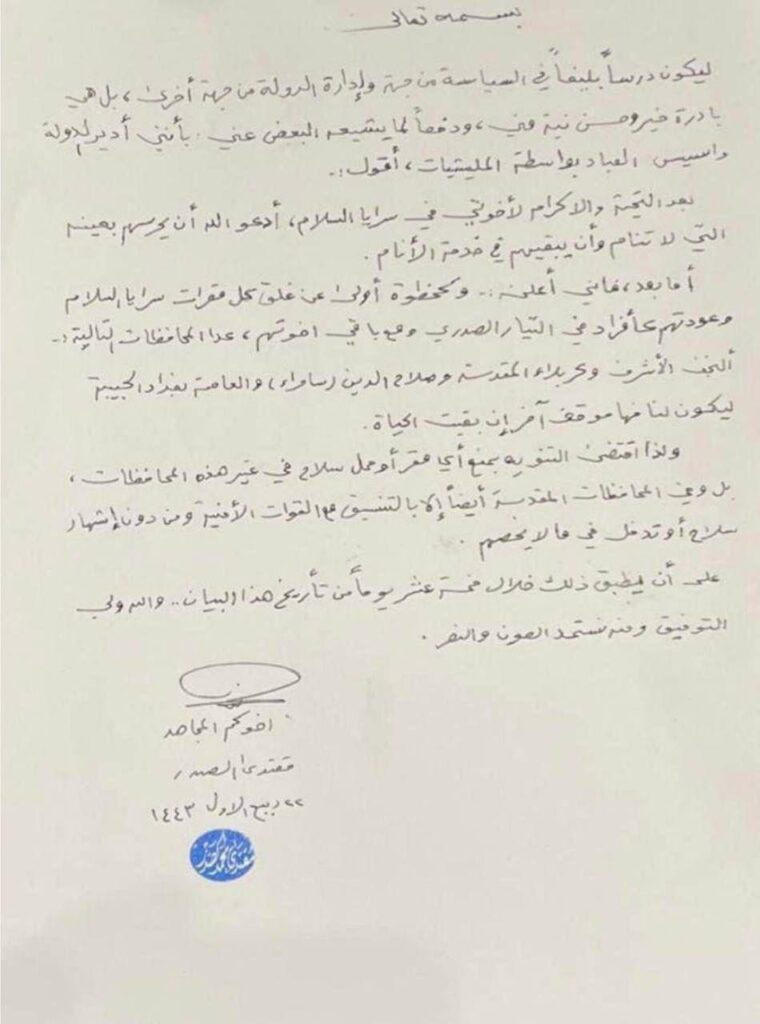 بسمه تعالى
ليكون درساً بليغاً في السياسة من جهة ولإدارة الدولة من جهة أخرى ، بل هي
بادرة خير وحسن نية مني ، ودفعاً لما يشيعه البعض عني : بأنني أدير الدولة
واسيس العباد بواسطة المليشيات ، أقول :-
بعد التحية والاكرام لأخوتي في سرايا السلام ، أدعو الله أن يحرسهم بعينه
التي لا تنام وأن يبقيهم في خدمة الأنام .
أما بعد ، فإنني أعلن :- وكخطوة أولى عن غلق كل مقرات سرايا السلام
وعودتهم كأفراد في التيار الصدري ومع باقي اخوتهم ، عدا المحافظات التالية :-
النجف الأشرف وكربلاء المقدسة وصلاح الدين (سامراء) والعاصمة بغداد الحبيبة
ليكون لنا فيها موقف آخر إن بقيت الحياة .
ولذا اقتضى التنويه بمنع أي مقر أو حمل سلاح في غير هذه المحافظات ،
بل وفي المحافظات المقدسة أيضاً إلا بالتنسيق مع القوات الأمنية ومن دون إشهار
سلاح أو تدخل في ما لا يخصهم .
على أن يطبق ذلك خلال خمسة عشر يوماً من تأريخ هذا البيان .. والله ولي
التوفيق ومنه نستمد العون والنصر .
اخوكم المجاهد
مقتدى الصدر
٢٢ ربيع الاول ١٤٤٣